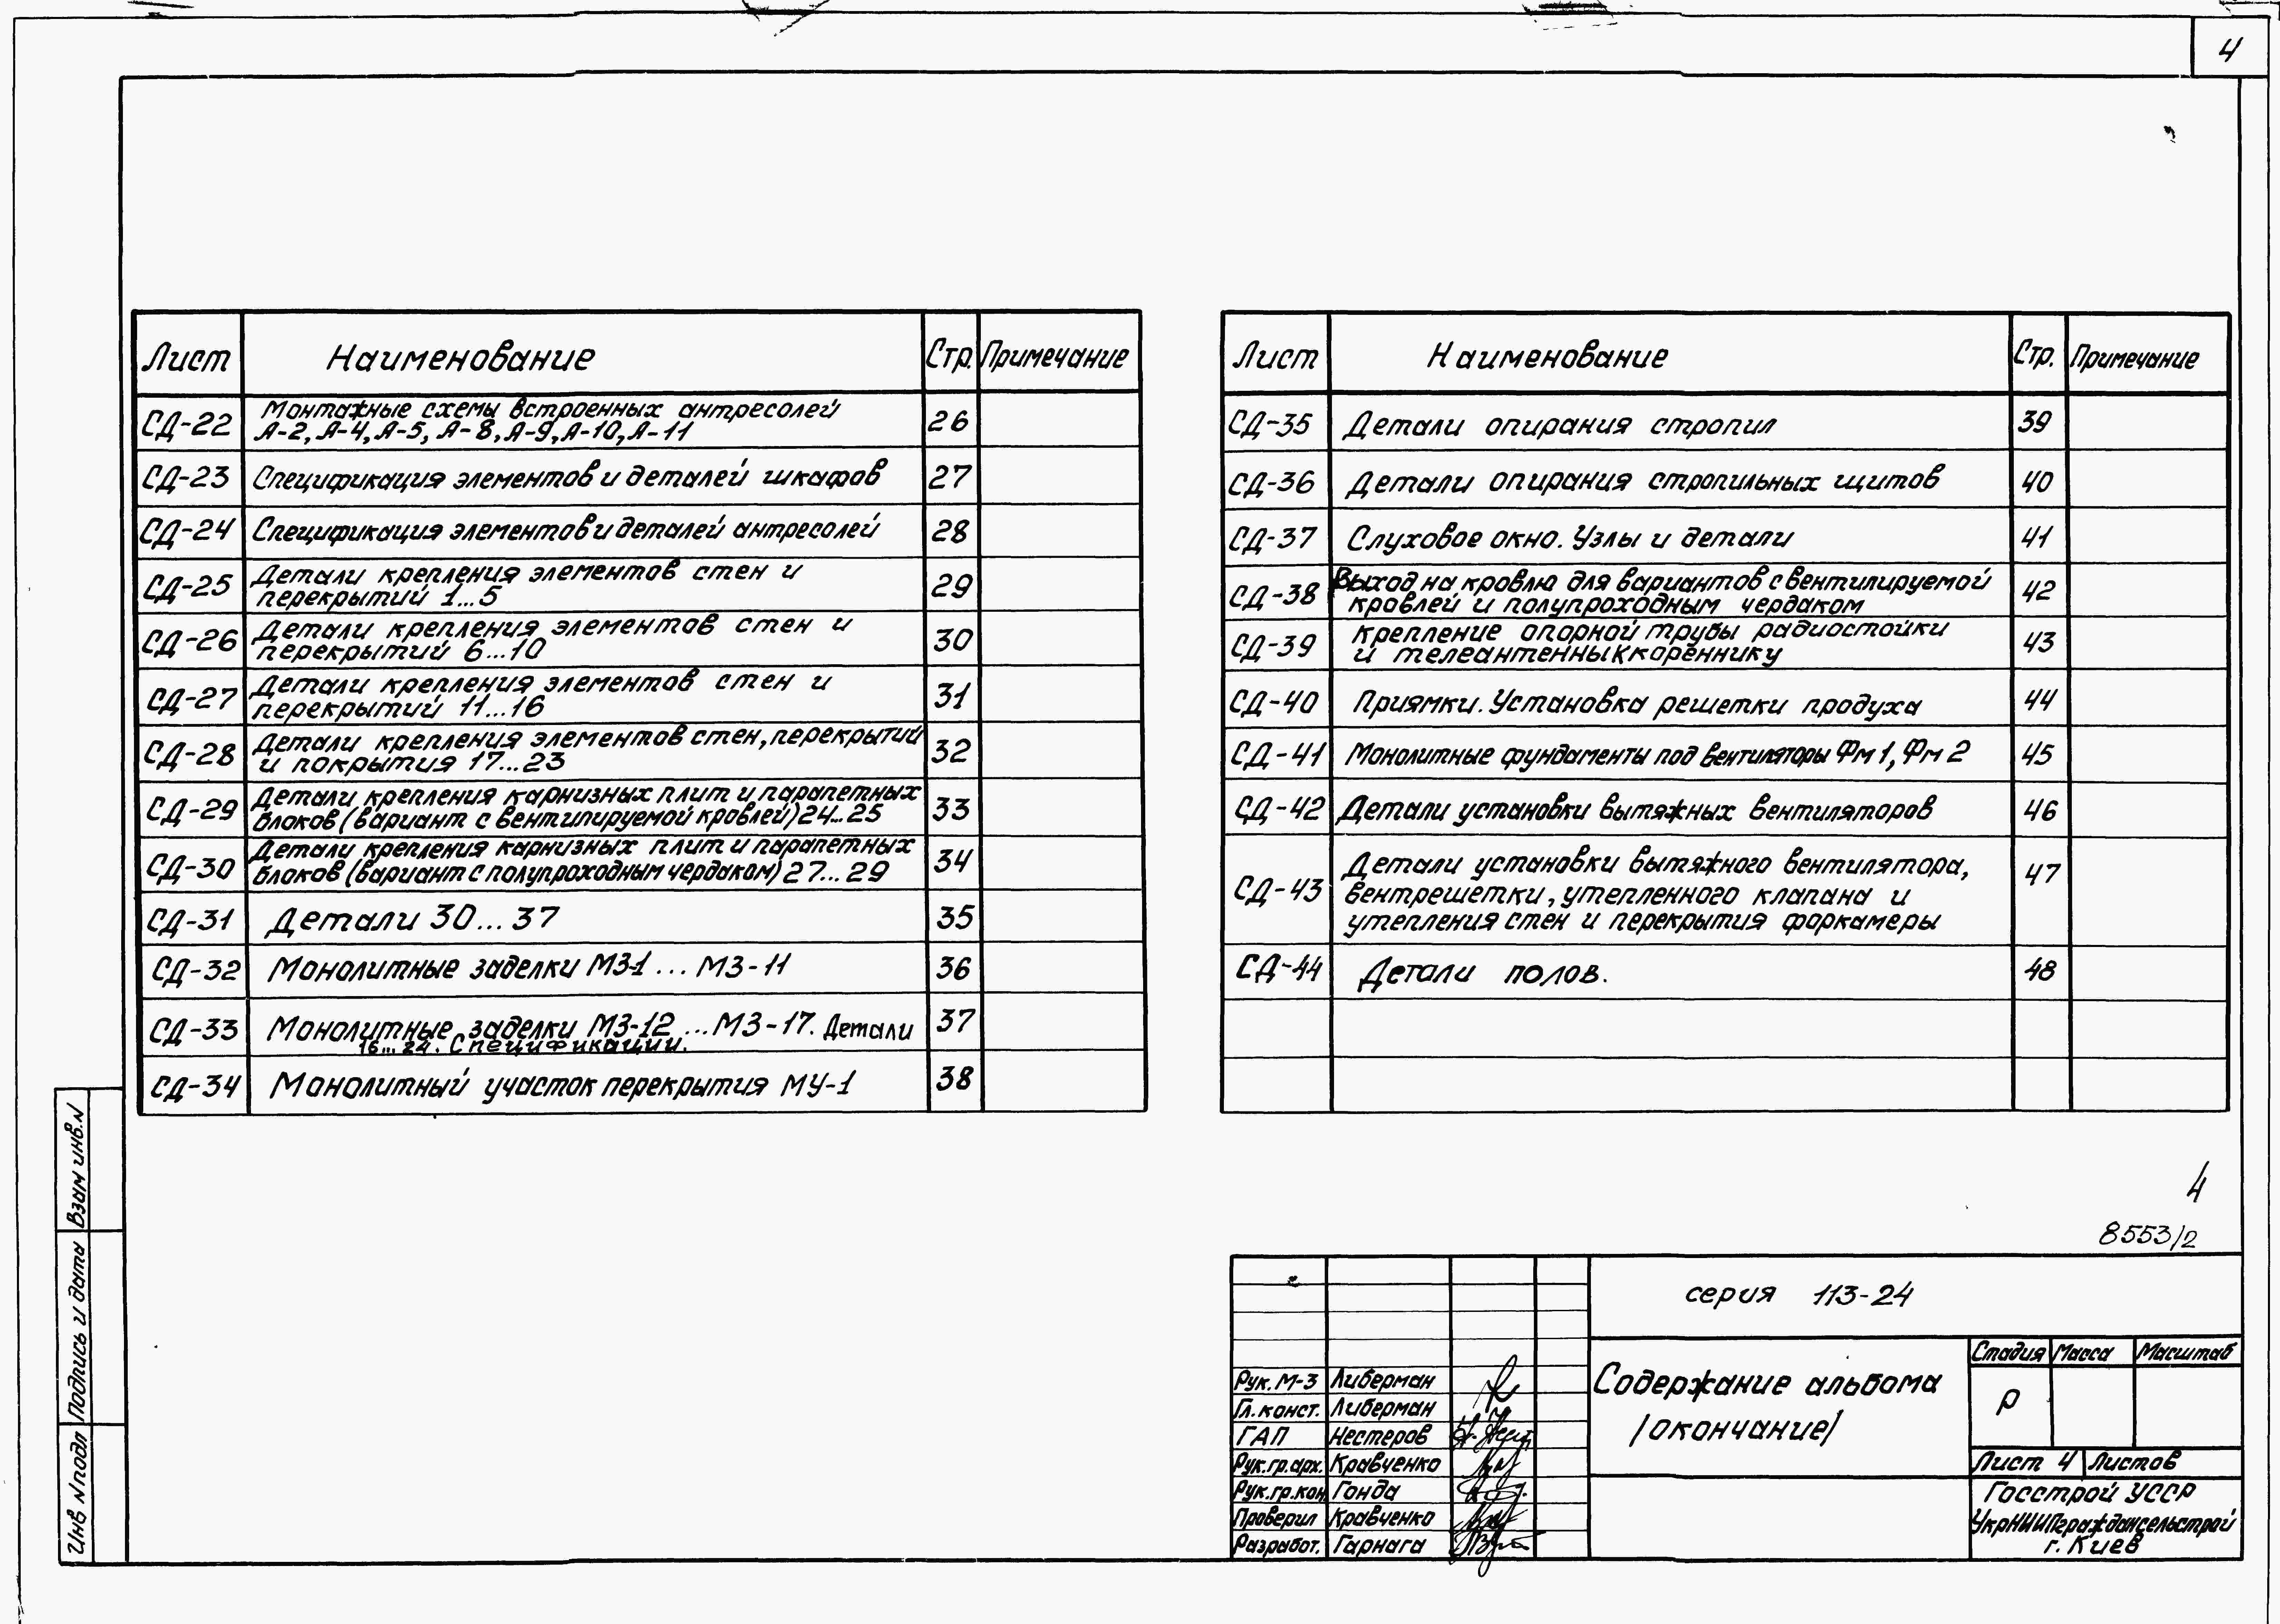 4
Лист Наименование Стр. Примечание
СД-22 Монтажные схемы встроенных антресолей 26
А-2, А-4, А-5, А-8, А-9, А-10, А-11
СД-23 Спецификация элементов и деталей шкафов 27
СД-24 Спецификация элементов и деталей антресолей 28
СД-25 Детали крепления элементов стен и 29
перекрытий 1...5
СД-26 Детали крепления элементов стен и 30
перекрытий 6...10
СД-27 Детали крепления элементов стен и 31
перекрытий 11...16
СД-28 Детали крепления элементов стен, перекрытий 32
и покрытия 17...23
СД-29 Детали крепления карнизных плит и парапетных 33
блоков (вариант с вентилируемой кровлей) 24...25
СД-30 Детали крепления карнизных плит и парапетных 34
блоков (вариант с полупроходным чердаком) 27...29
СД-31 Детали 30...37 35
СД-32 Монолитные заделки МЗ-1 ... МЗ-11 36
СД-33 Монолитные заделки МЗ-12 ... МЗ-17. Детали 37
16... 24. Спецификации.
СД-34 Монолитный участок перекрытия МУ-1 38
Лист Наименование Стр. Примечание
СД-35 Детали опирания стропил 39
СД-36 Детали опирания стропильных щитов 40
СД-37 Слуховое окно. Узлы и детали 41
СД-38 Выход на кровлю для вариантов с вентилируемой 42
кровлей и полупроходным чердаком
СД-39 крепление опорной трубы радиостойки 43
и телеантенны к кореннику
СД-40 Приямки. Установка решетки продуха 44
СД-41 Монолитные фундаменты под вентиляторы Фм 1, Фм 2 45
СД-42 Детали установки вытяжных вентиляторов 46
СД-43 Детали установки вытяжного вентилятора, 47
вентрешетки, утепленного клапана и
утепления стен и перекрытия форкамеры
СД-44 Детали полов. 48
4
8553/2
серия 113-24
Содержание альбома
/окончание/
Стадия Масса Масштаб
Р
Лист 4 Листов
Госстрой УССР
УкрНИИПграждансельстрой
г. Киев
Рук. М-3 Либерман
Гл. конст. Либерман
ГАП Нестеров
Рук. гр. арх. Кравченко
Рук. гр. кон. Гонда
Проверил Кравченко
Разработ. Гарнага
Взам инв. N
Подпись и дата
Инв N подл